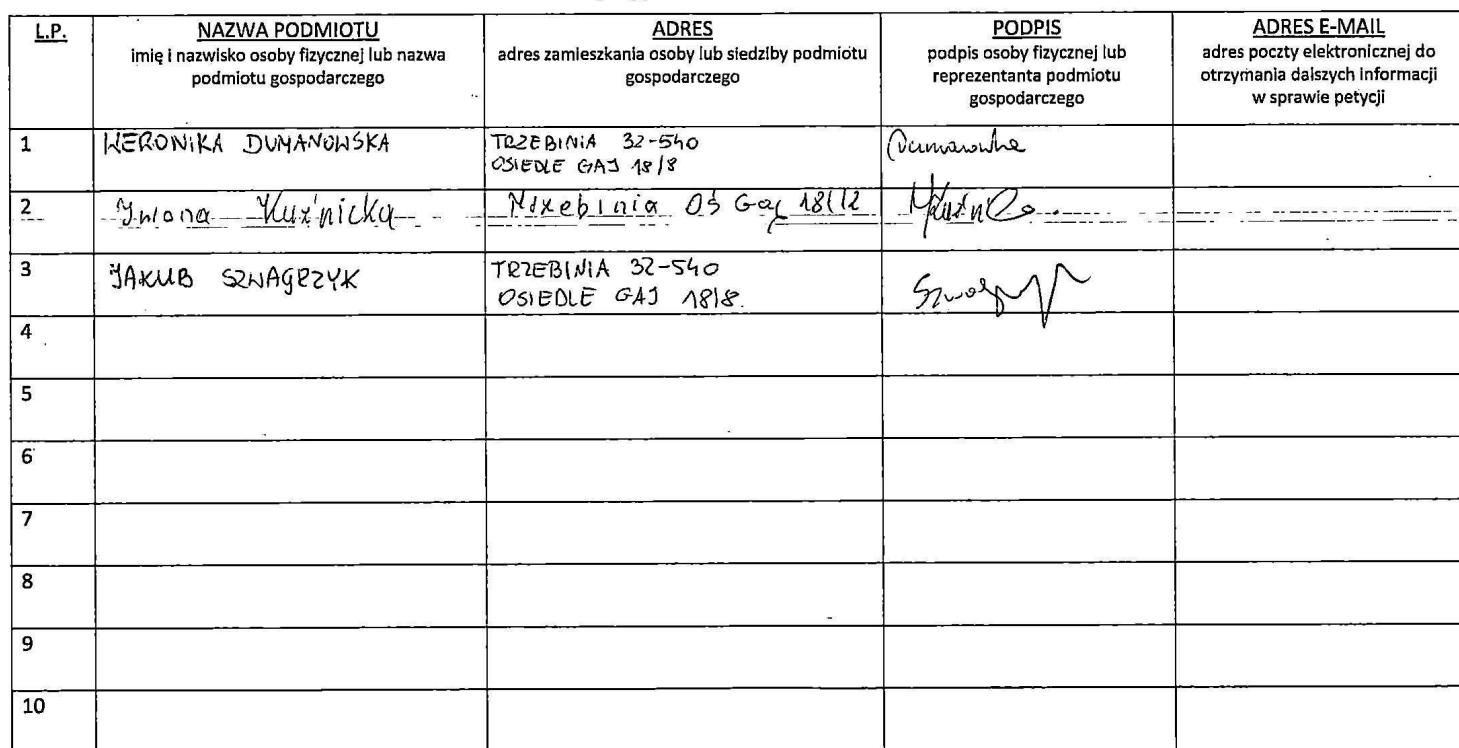 L.P. NAZWA PODMIOTU ADRES PODPIS ADRES E-MAIL
imię i nazwisko osoby fizycznej lub nazwa podmiotu gospodarczego
adres zamieszkania osoby lub siedziby podmiotu gospodarczego
podpis osoby fizycznej lub reprezentanta podmiotu gospodarczego
adres poczty elektronicznej do otrzymania dalszych informacji w sprawie petycji
1 WERONIKA DUMANOWSKA TRZEBINIA 32-540
OSIEDLE GAJ 18/8
Dumanowska
2 Iwona Kuźnicka Trzebinia Oś Gaj 18/12
3 JAKUB SZWAGRZYK TRZEBINIA 32-540
OSIEDLE GAJ 18/8.
4
5
6
7
8
9
10